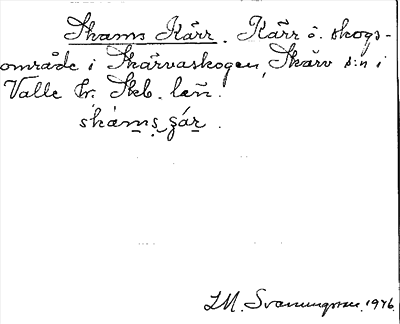 Skams Kärr. Kärr o. skogs-
område i Skärvaskogen, Skärv s:n i
Valle hr. Skb. län.
skáms ʒár.
1946.